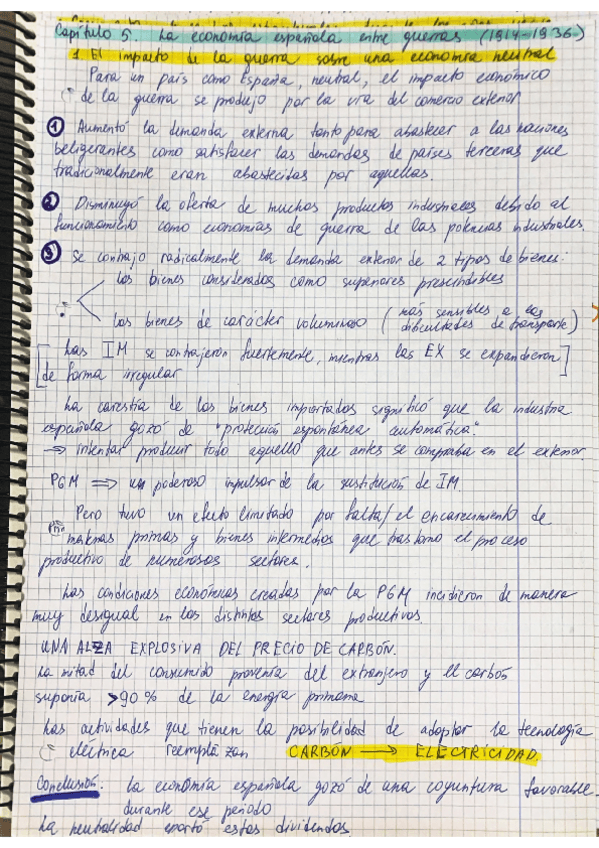 Capítulo 5. La economía española entre guerras (1914-1936)
1. El impacto de la guerra sobre una economía neutral
Para un país como España, neutral, el impacto económico
de la guerra se produjo por la vía del comercio exterior
① Aumentó la demanda externa tanto para abastecer a las naciones
beligerantes como satisfacer las demandas de países terceros que
tradicionalmente eran abastecidas por aquellas
② Disminuyó la oferta de muchos productos industriales debido al
funcionamiento como economías de guerra de las potencias industriales.
③ Se contrajo radicalmente la demanda exterior de 2 tipos de bienes:
los bienes considerados como superiores prescindibles
los bienes de carácter voluminoso (más sensibles a las
dificultades de transporte)
[Las IM se contrajeron fuertemente, mientras las EX se expandieron
de forma irregular]
La carestía de los bienes importados significó que la industria
española gozó de "protección espontánea automática"
⇒ intentar producir todo aquello que antes se compraba en el exterior.
PGM ⇒ un poderoso impulsor de la sustitución de IM
Pero tuvo un efecto limitado por falta/el encarecimiento de
materias primas y bienes intermedios que trastornó el proceso
productivo de numerosos sectores.
Las condiciones económicas creadas por la PGM incidieron de manera
muy desigual en los distintos sectores productivos.
UNA ALZA EXPLOSIVA DEL PRECIO DE CARBÓN.
La mitad del consumido provenía del extranjero y el carbón
suponía >90% de la energía primaria
Las actividades que tienen la posibilidad de adoptar la tecnología
eléctrica reemplazan CARBÓN → ELECTRICIDAD
Conclusión. La economía española gozó de una coyuntura favorable
durante ese período
La neutralidad aportó estos dividendos